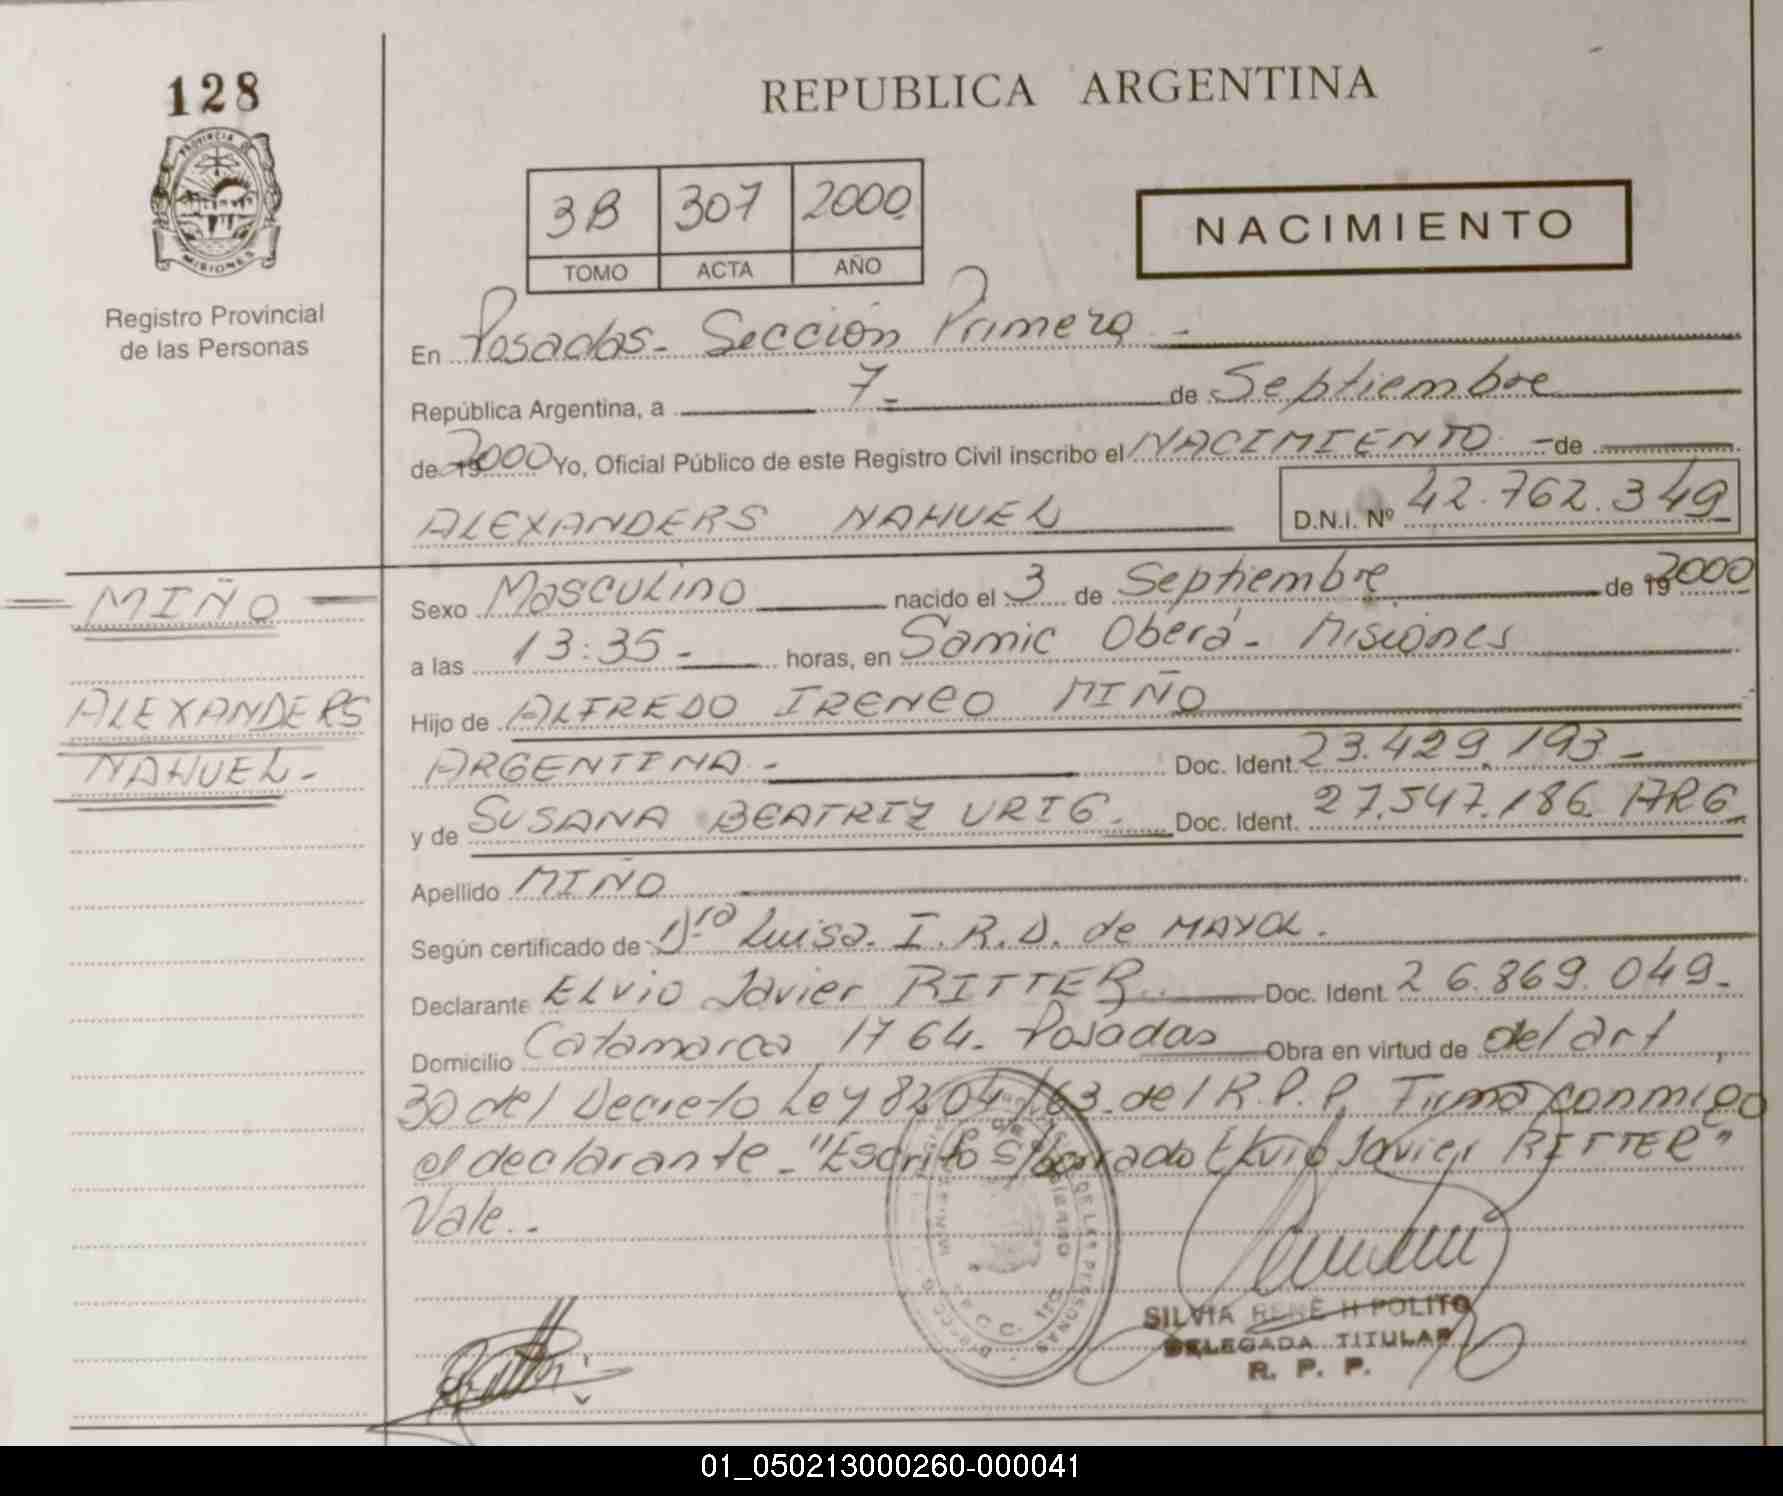 128
PROVINCIA DE
MISIONES
Registro Provincial
de las Personas
REPUBLICA ARGENTINA
3B 307 2000
TOMO ACTA AÑO
NACIMIENTO
En Posadas - Sección Primera -
República Argentina, a 7 - de Septiembre
de 19 2000 Yo, Oficial Público de este Registro Civil inscribo el NACIMIENTO - de
ALEXANDERS NAHUEL D.N.I. Nº 42.762.349
MIÑO
ALEXANDERS
NAHUEL -
Sexo Masculino nacido el 3 de Septiembre de 19 2000
a las 13:35 - horas, en Samic Oberá - Misiones
Hijo de ALFREDO IRENEO MIÑO
ARGENTINA - Doc. Ident. 23.429.193 -
y de SUSANA BEATRIZ URIG. Doc. Ident. 27.547.186 ARG
Apellido MIÑO
Según certificado de Dra Luisa. I. R. D. de MAYOL.
Declarante ELVIO Javier RITTER Doc. Ident. 26.869.049 -
Domicilio Catamarca 1764 - Posadas Obra en virtud de del art
30 del Decreto Ley 8204/63 del R.P.P. Firma conmigo
el declarante - "Escrito s/borrado Elvio Javier RITTER"
Vale. -
SILVIA RENÉ HIPOLITO
DELEGADA TITULAR
R. P. P.
01_050213000260-000041